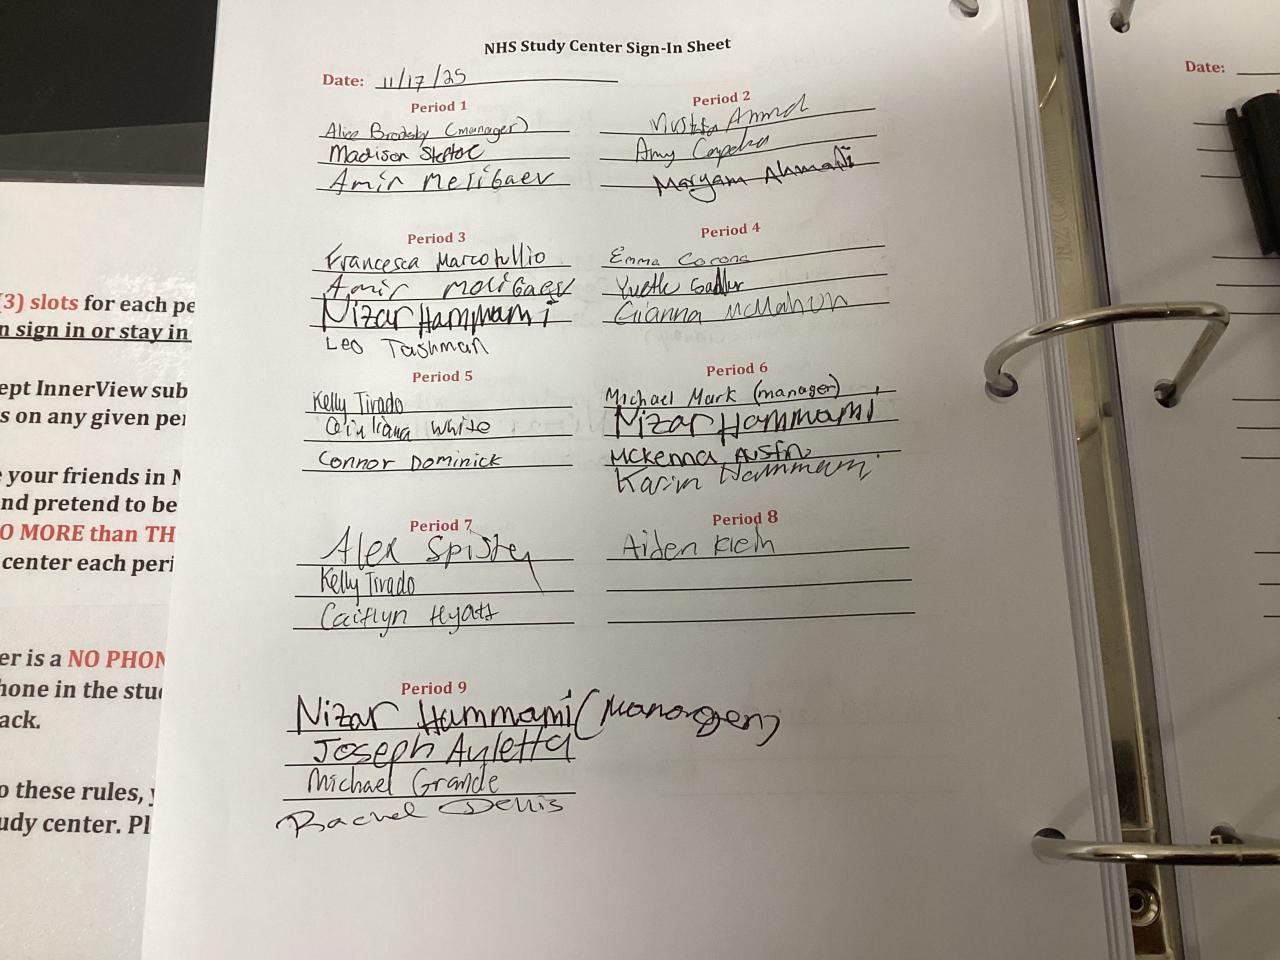 NHS Study Center Sign-In Sheet
Date: 11/17/25
Date:
Period 1
Alice Brodsky (manager)
Madison Steptoe
Amir Melibaev
Period 2
Ahmad
Amy
Maryam Ahmadi
Period 3
Francesca Marcotullio
Amir Melibaev
Nizar Hammami
Leo Tashman
Period 4
Emma Corona
Gianna McMahon
Period 5
Kelly Tirado
White
Connor Dominick
Period 6
Michael Mark (manager)
Nizar Hammami
Mckenna Austin
Karim Hammami
Period 7
Alex
Kelly Tirado
Caitlyn Hyatt
Period 8
Aiden Klein
Period 9
Nizar Hammami (Manager)
Joseph Ayletta
Michael Grande
Rachel Dellis
(3) slots for each pe
n sign in or stay in
ept InnerView sub
s on any given per
your friends in N
nd pretend to be
O MORE than TH
center each peri
er is a NO PHON
hone in the stu
ack.
o these rules, y
udy center. Pl